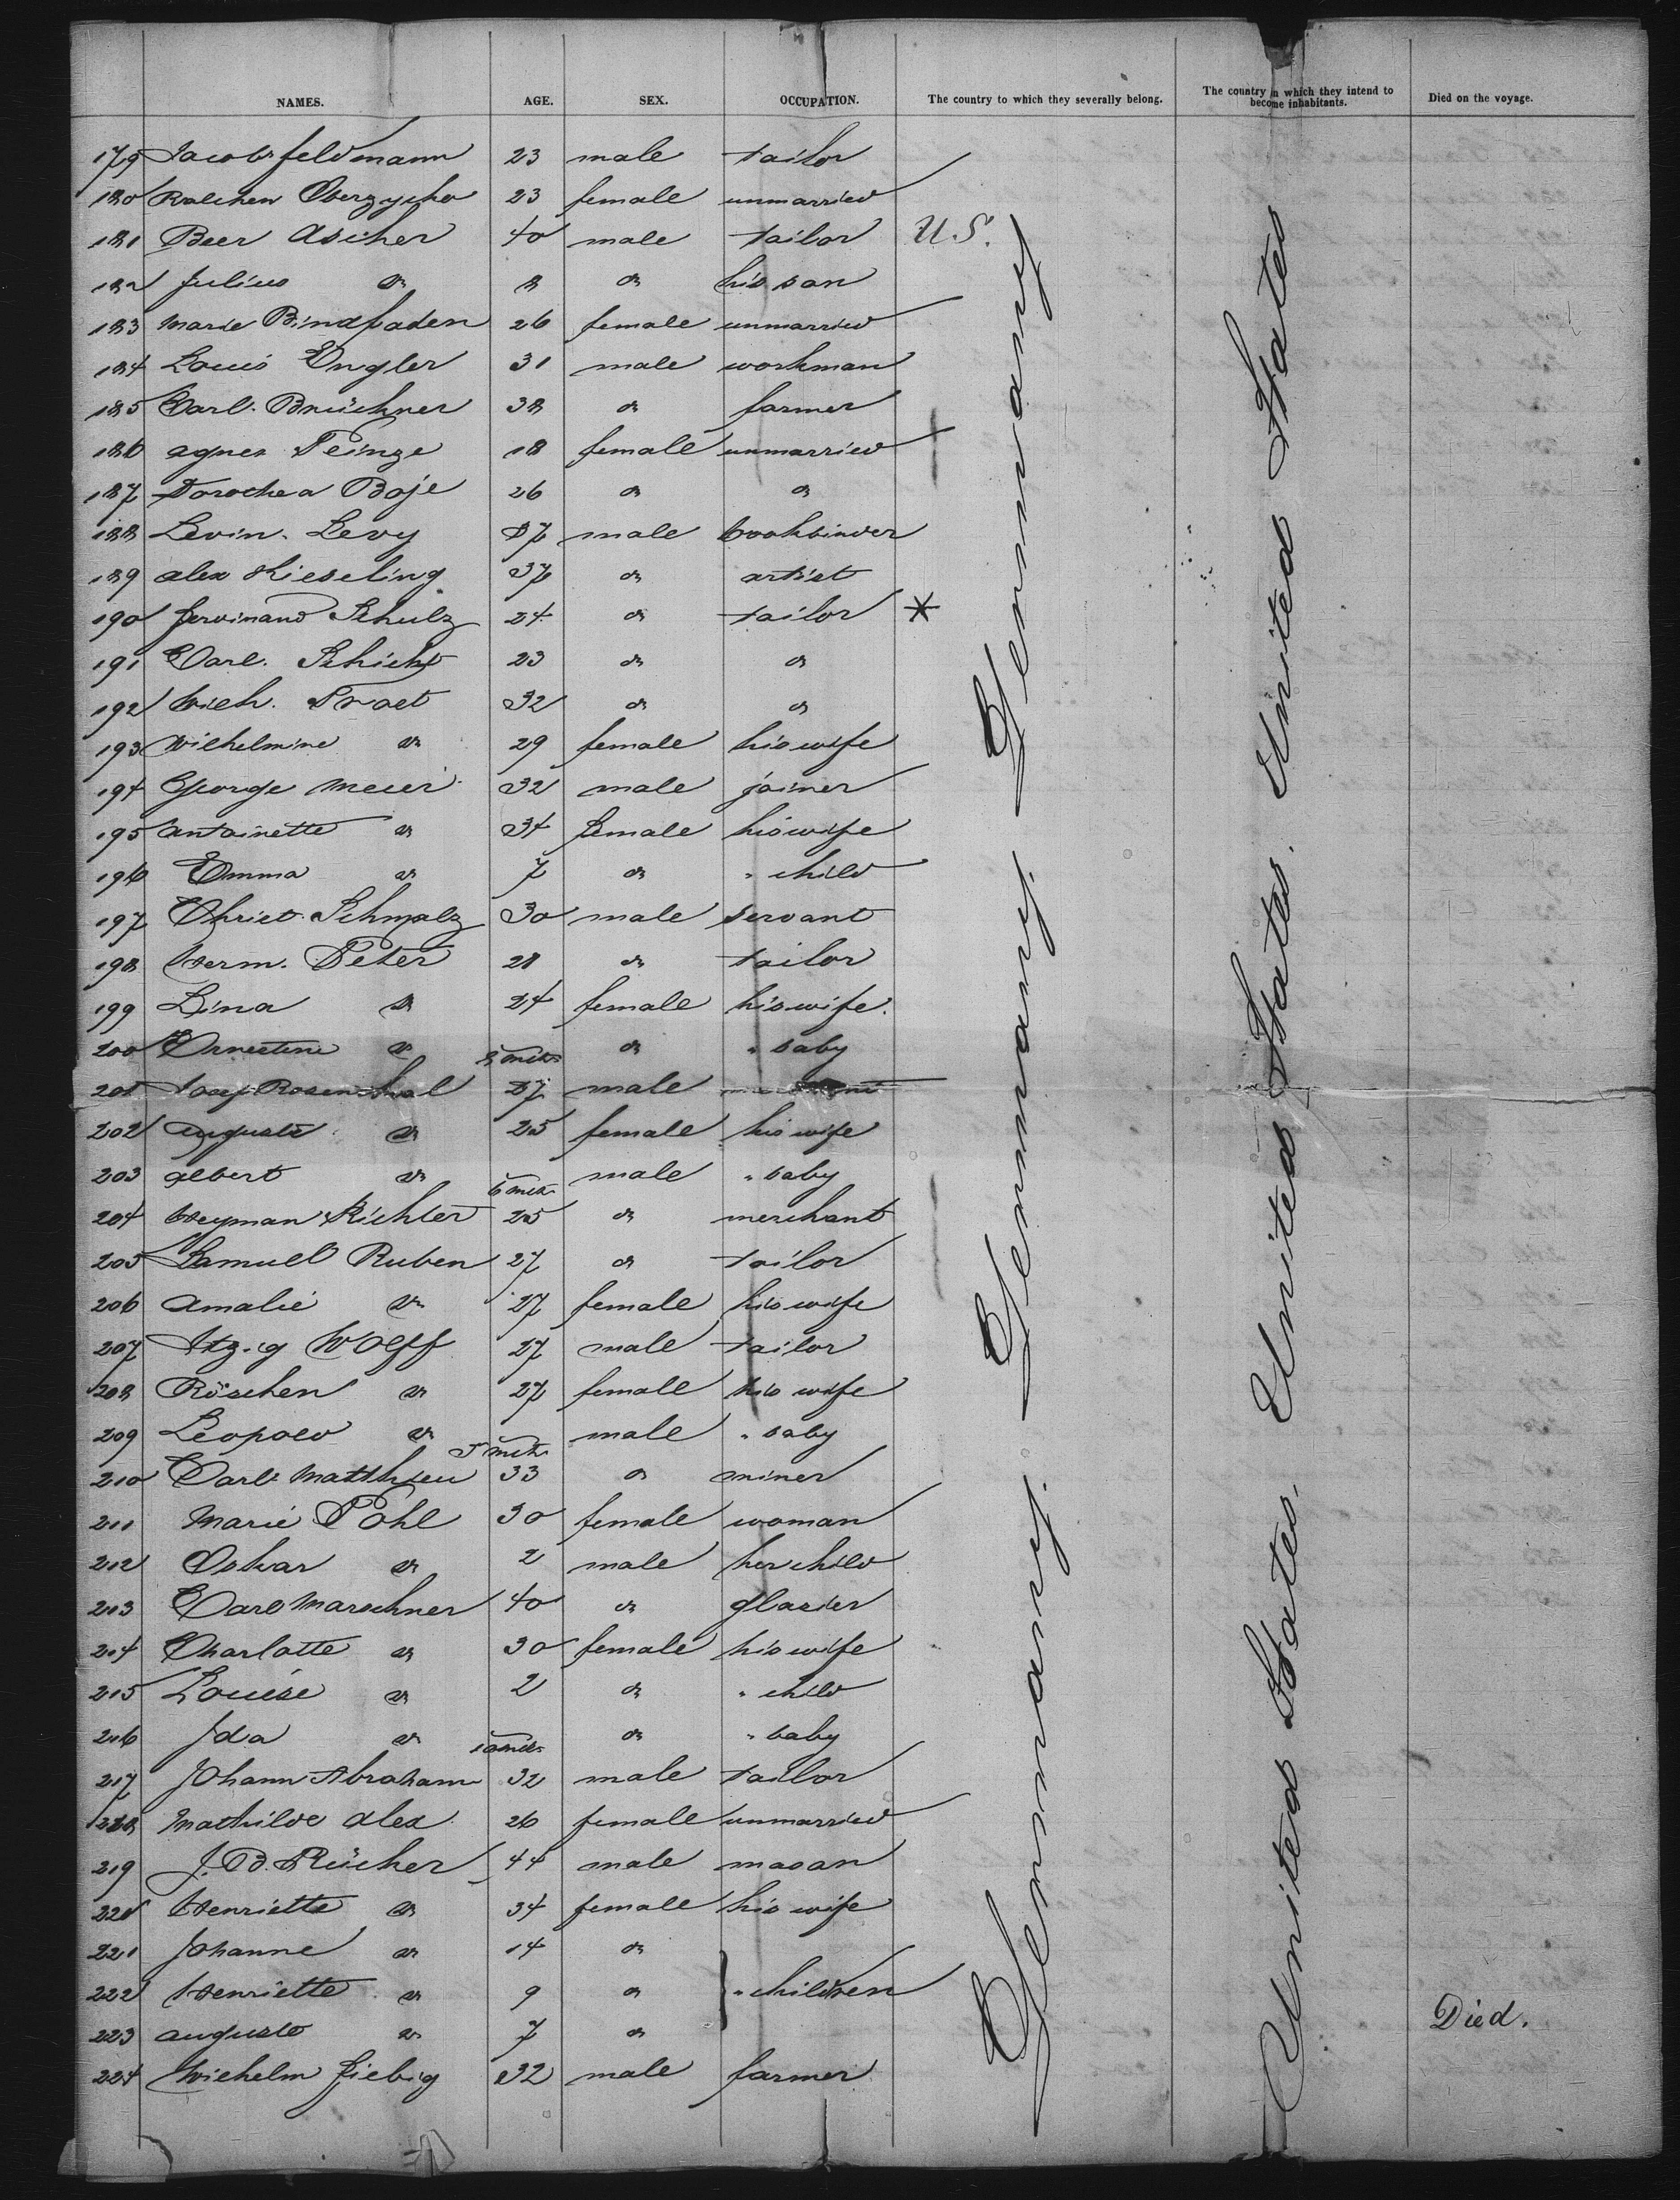 NAMES. AGE. SEX. OCCUPATION. The country to which they severally belong. The country in which they intend to become inhabitants. Died on the voyage.
179 Jacob Feldmann 23 male tailor
180 23 female unmarried
181 Beer Ascher 40 male tailor U.S.
182 Julius do 8 do his son
183 Marie Bindfaden 26 female unmarried
184 Louis Engler 31 male workman
185 Carl Brückner 38 do farmer
186 Agnes Peinze 18 female unmarried
187 Dorothea Boje 26 do do
188 Levin Levy 37 male bookbinder
189 Alex Kieseling 37 do artist
190 Ferdinand Schulz 24 do tailor *
191 Carl Schicht 23 do do
192 Wilh. 32 do do
193 Wilhelmine do 29 female his wife
194 George Meier 32 male joiner
195 Antoinette do 34 female his wife
196 Emma do 7 do " child
197 Christ. Schmalz 30 male servant
198 Herm. Peter 28 do tailor
199 Lina do 24 female his wife.
200 Ernestine do 8 mths do " baby
201 Josef Rosenthal 37 male
202 Auguste do 25 female his wife
203 Albert do 6 mths male " baby
204 Heyman Richter 25 do merchant
205 Samuel Ruben 27 do tailor
206 Amalie do 27 female his wife
207 Itzig Wolff 27 male tailor
208 Röschen do 27 female his wife
209 Leopold do 5 mths male " baby
210 Carl Matthieu 33 do miner
211 Marie Pohl 30 female woman
212 Oskar do 2 male her child
213 Carl Marschner 40 do glazier
214 Charlotte do 30 female his wife
215 Louise do 2 do " child
216 Ida do 10 mths do " baby
217 Johann Abraham 32 male tailor
218 Mathilde Alex 26 female unmarried
219 J. B. Rücher 44 male mason
220 Henriette do 34 female his wife
221 Johanne do 14 do
222 Henriette do 9 do " children
223 Auguste do 7 do Died.
224 Wilhelm Fiebig 32 male farmer
Germany. Germany. Germany. Germany
United States. United States. United States